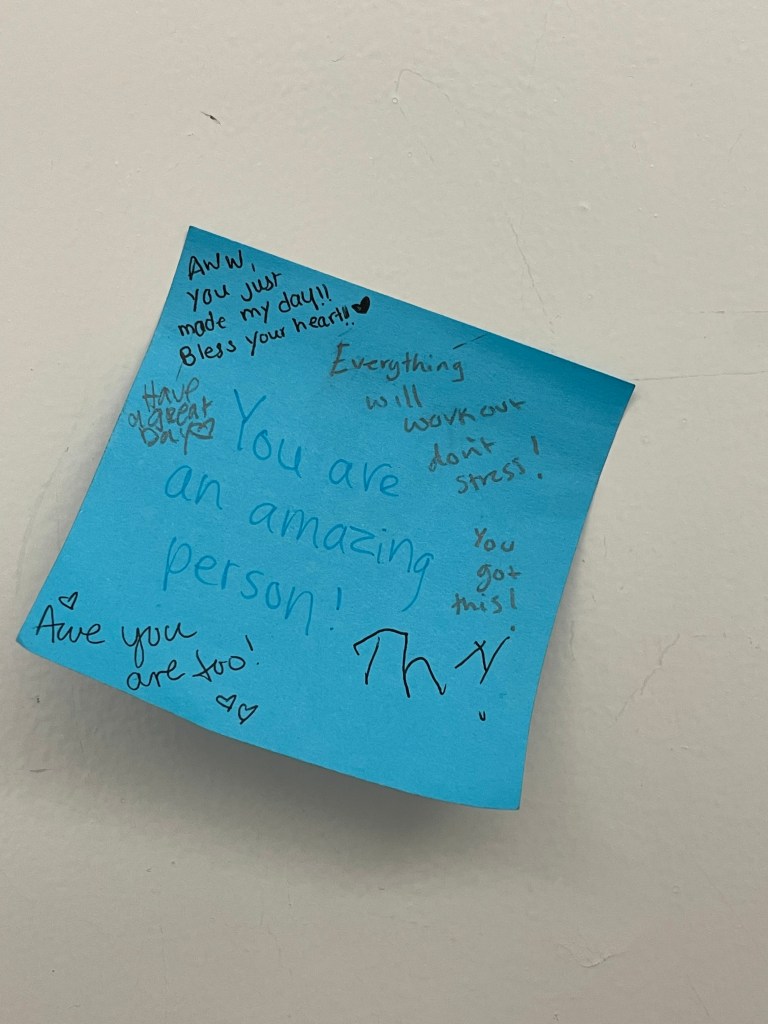 AWW,
you just
made my day!!
Bless your heart!! ♥
Everything
will
work out
don't
stress!
Have
a great
Day ♡
You are
an amazing
person!
You
got
this!
Awe you
are too!